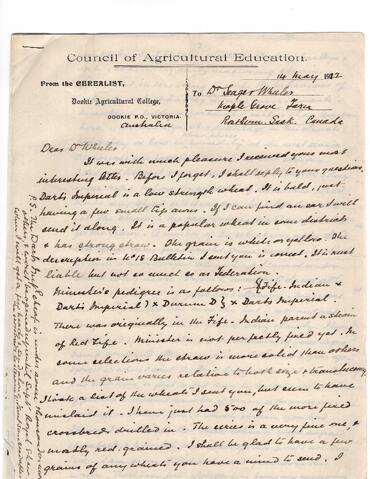 Council of Agricultural Education.
14 May 1912
From the CEREALIST,
Dookie Agricultural College,
DOOKIE P.O., VICTORIA.
Australia
To Dr Seager Wheeler
Maple Grove Farm
Rosthern. Sask. Canada
Dear Dr Wheeler
It was with much pleasure I received your most
interesting letter. Before I forget, I shall reply to your questions.
Darts Imperial is a low strength wheat. It is bald, just
having a few small tip awns. If I can find an ear I will
send it along. It is a popular wheat in some districts
& has strong straw. The grain is white or yellow. The
description in No 18 Bulletin I sent you is correct. It is rust
liable but not so much so as Federation.
Minister's pedigree is as follows: - {(Fife-Indian x
Darts Imperial) x Durum D} x Darts Imperial.
There was originally in the Fife-Indian parent a strain
of Red Fife. Minister is not perfectly fixed yet. In
some selections the straw is more solid than others
and the grain varies relative to both size & translucency.
I had a list of the wheats I sent you, but seem to have
mislaid it. I have just had 500 of the more fixed
crossbreds drilled in. The series is a very fine one, &
mostly red grained. I shall be glad to have a few
grains of any wheats you have a mind to send. I
P.S. The Darts Imp'l sheaf is under some thousands of